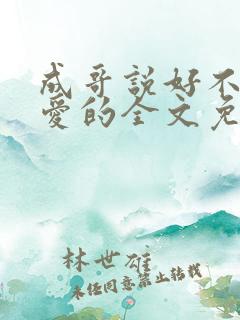 成哥說好不
愛的全文免
林世雄
未经同意禁止转载